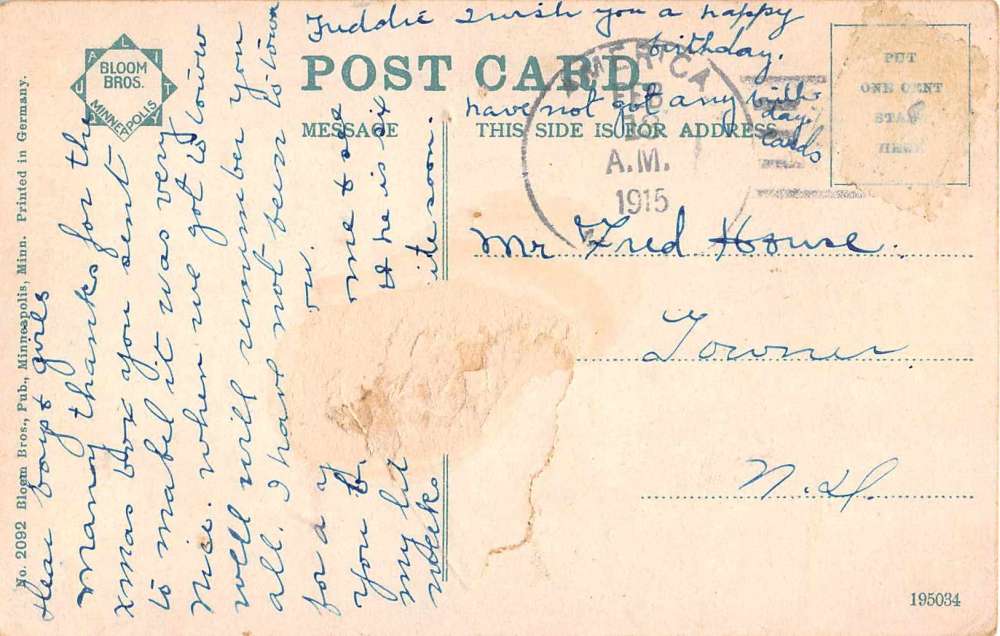 Freddie I wish you a happy
birthday.
have not got any birth
day
cards
QUALITY
BLOOM
BROS.
MINNEAPOLIS
POST CARD.
MESSAGE
THIS SIDE IS FOR ADDRESS
PUT
ONE CENT
STAMP
HERE
AMERICA
FEB
A.M.
1915
Mr Fred House.
Towner
N.D.
Dear boys & girls
Many thanks for the
xmas box you sent
to mabel it was very
nice. when we got to know
well will remember you
all. I have not been to town
for a y
you
me & see
my lit
& he is six
weeks
ite soon.
No. 2092 Bloom Bros., Pub., Minneapolis, Minn. Printed in Germany.
195034